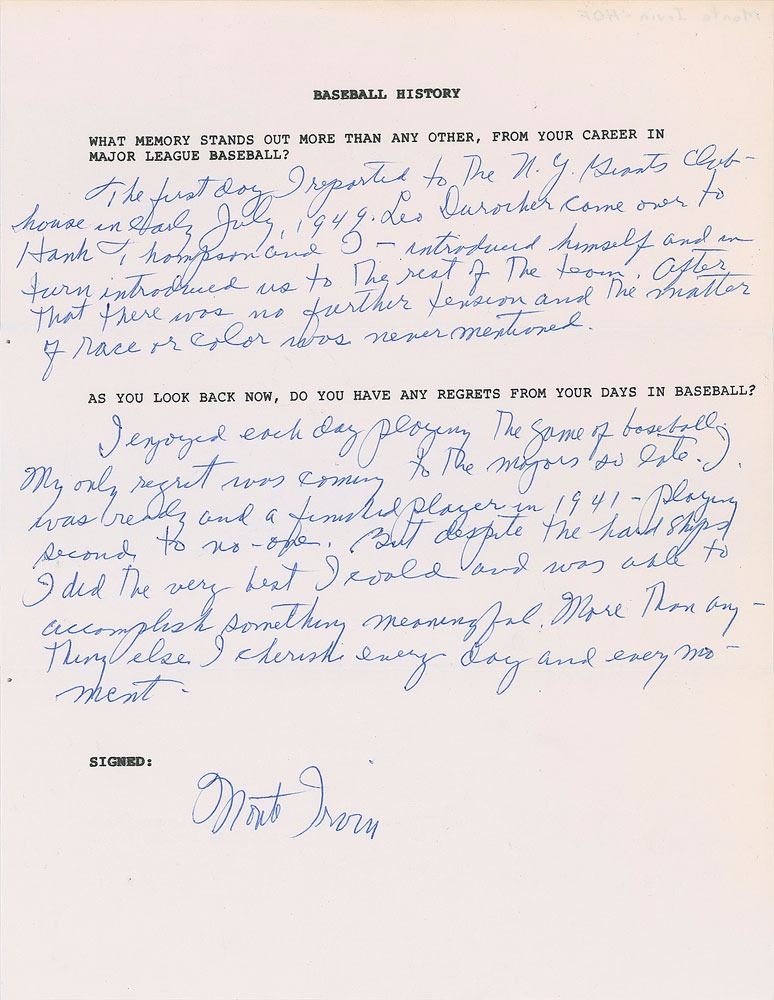 BASEBALL HISTORY
WHAT MEMORY STANDS OUT MORE THAN ANY OTHER, FROM YOUR CAREER IN
MAJOR LEAGUE BASEBALL?
The first day I reported to The N.Y. Giants Club-
house in early July, 1949. Leo Durocher came over to
Hank Thompson and I - introduced himself and in
turn introduced us to The rest of The team. After
That there was no further tension and The matter
of race or color was never mentioned.
AS YOU LOOK BACK NOW, DO YOU HAVE ANY REGRETS FROM YOUR DAYS IN BASEBALL?
I enjoyed each day playing The game of baseball.
My only regret was coming to The majors so late. I
was ready and a finished player in 1941 - playing
second to no-one. But despite The hardships
I did The very best I could and was able to
accomplish something meaningful. More Than any-
Thing else I cherish every day and every mo-
ment.
SIGNED:
Monte Irvin
Monte Irvin - HOF